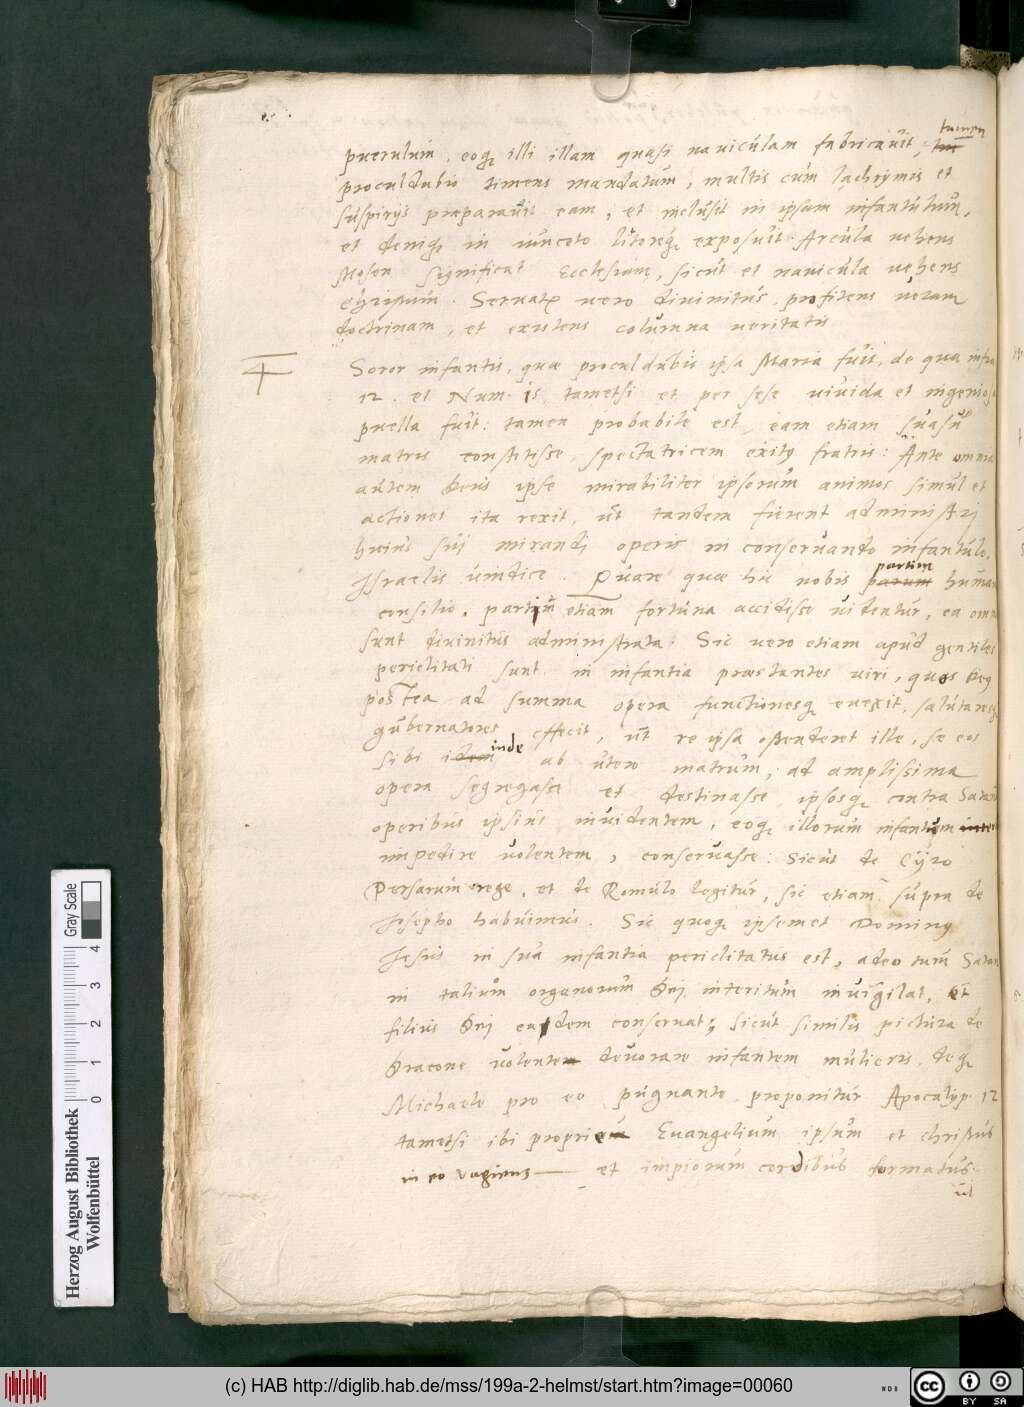 tamen
puerulum, eoq; illi illam quasi naviculam fabricavit, tñ
proculdubio timens mandatum, multis cum lachrymis et
suspirijs præparavit eam, et inclusit in ipsam infantulum,
et deniq; in iunceto litoreq; exposuit. Arcula vehens
Mosen significat Ecclesiam, sicut et navicula vehens
Christum. Servatr vero divinitus, profitens veram
doctrinam, et existens columna veritatis
Soror infantis, quæ proculdubio ipsa Maria fuit, de qua infra
12. et Num. is tametsi et per sese vivida et ingeniosa
puella fuit: tamen probabile est, eam etiam suasu
matris constitisse, spectatricem exity fratris: Ante omnia
autem Deus ipse mirabiliter ipsorum animos simul et
actiones ita rexit, ut tandem fierent administri
huius sui mirandi operis in conservando infantulo,
Israelis vindice. Quare quæ hic nobis parum partim human
consilio, partim etiam fortuna accidisse videntur, ea omn
sunt divinitus administrata. Sic vero etiam apud gentiles
periclitati sunt in infantia præstantes viri, quos Deg
postea ad summa opera functionesq; evexit, salutaresq;
gubernatores effecit, ut re ipsa ostenderet ille, se eos
sibi idem inde ab utero matrum, ad amplissima
opera segregasse et destinasse, ipsosq; contra Satan
operibus ipsius invidentem, eoq; illorum infantum inter
impedire volentem, conservasse: Sicut de Cyro
Persarum rege, et de Romulo legitur, sic etiam supra de
Josepho habuimus. Sic quoq; ipsemet Doming
Jesus in sua infantia periclitatus est, adeo tum Satan
in talium organorum Dei interitum invigilat, Et
filius Dei easdem conservat, sicut similis pictura de
Dracone volentem devorare infantem mulieris, deq;
Michaele pro eo pugnante proponitur Apocalyp. 12
tametsi ibi proprieum Evangelium ipsum et Christus
in eo vagiens et impiorum cordibus formatus.
ut
Herzog August Bibliothek
Wolfenbüttel
0 1 2 3 4
Gray Scale
(c) HAB http://diglib.hab.de/mss/199a-2-helmst/start.htm?image=00060
NDB
cc
BY SA